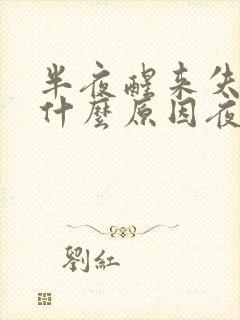 半夜醒来失
什麼原因夜
劉紅